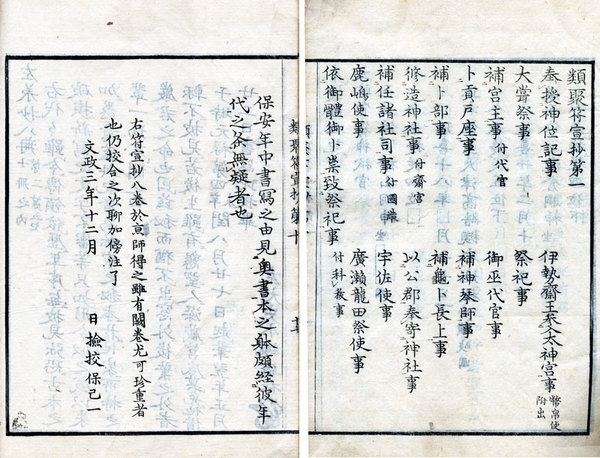 類聚符宣抄第一
奉授神位記事 伊勢齋王參太神宮事 幣帛使附出
大嘗祭事 祭祀事
補宮主事 付代官 御巫代官事
卜貢戸座事 補神琴師事
補卜部事 補龜卜長上事
修造神社事 付齋宮 以公郡奉寄神社事
補任諸社司事 付國造 宇佐使事
鹿嶋使事 廣瀬龍田祭使事
依御體御卜祟致祭祀事 付科祓事
類聚符宣抄第十
保安年中書寫之由見奥書本之躰頗經彼年
代之条無疑者也
右符宣抄八巻於京師得之雖有闕巻尤可珍重者
也仍挍合之次聊加傍注了
文政三年十二月 日 檢挍保己一